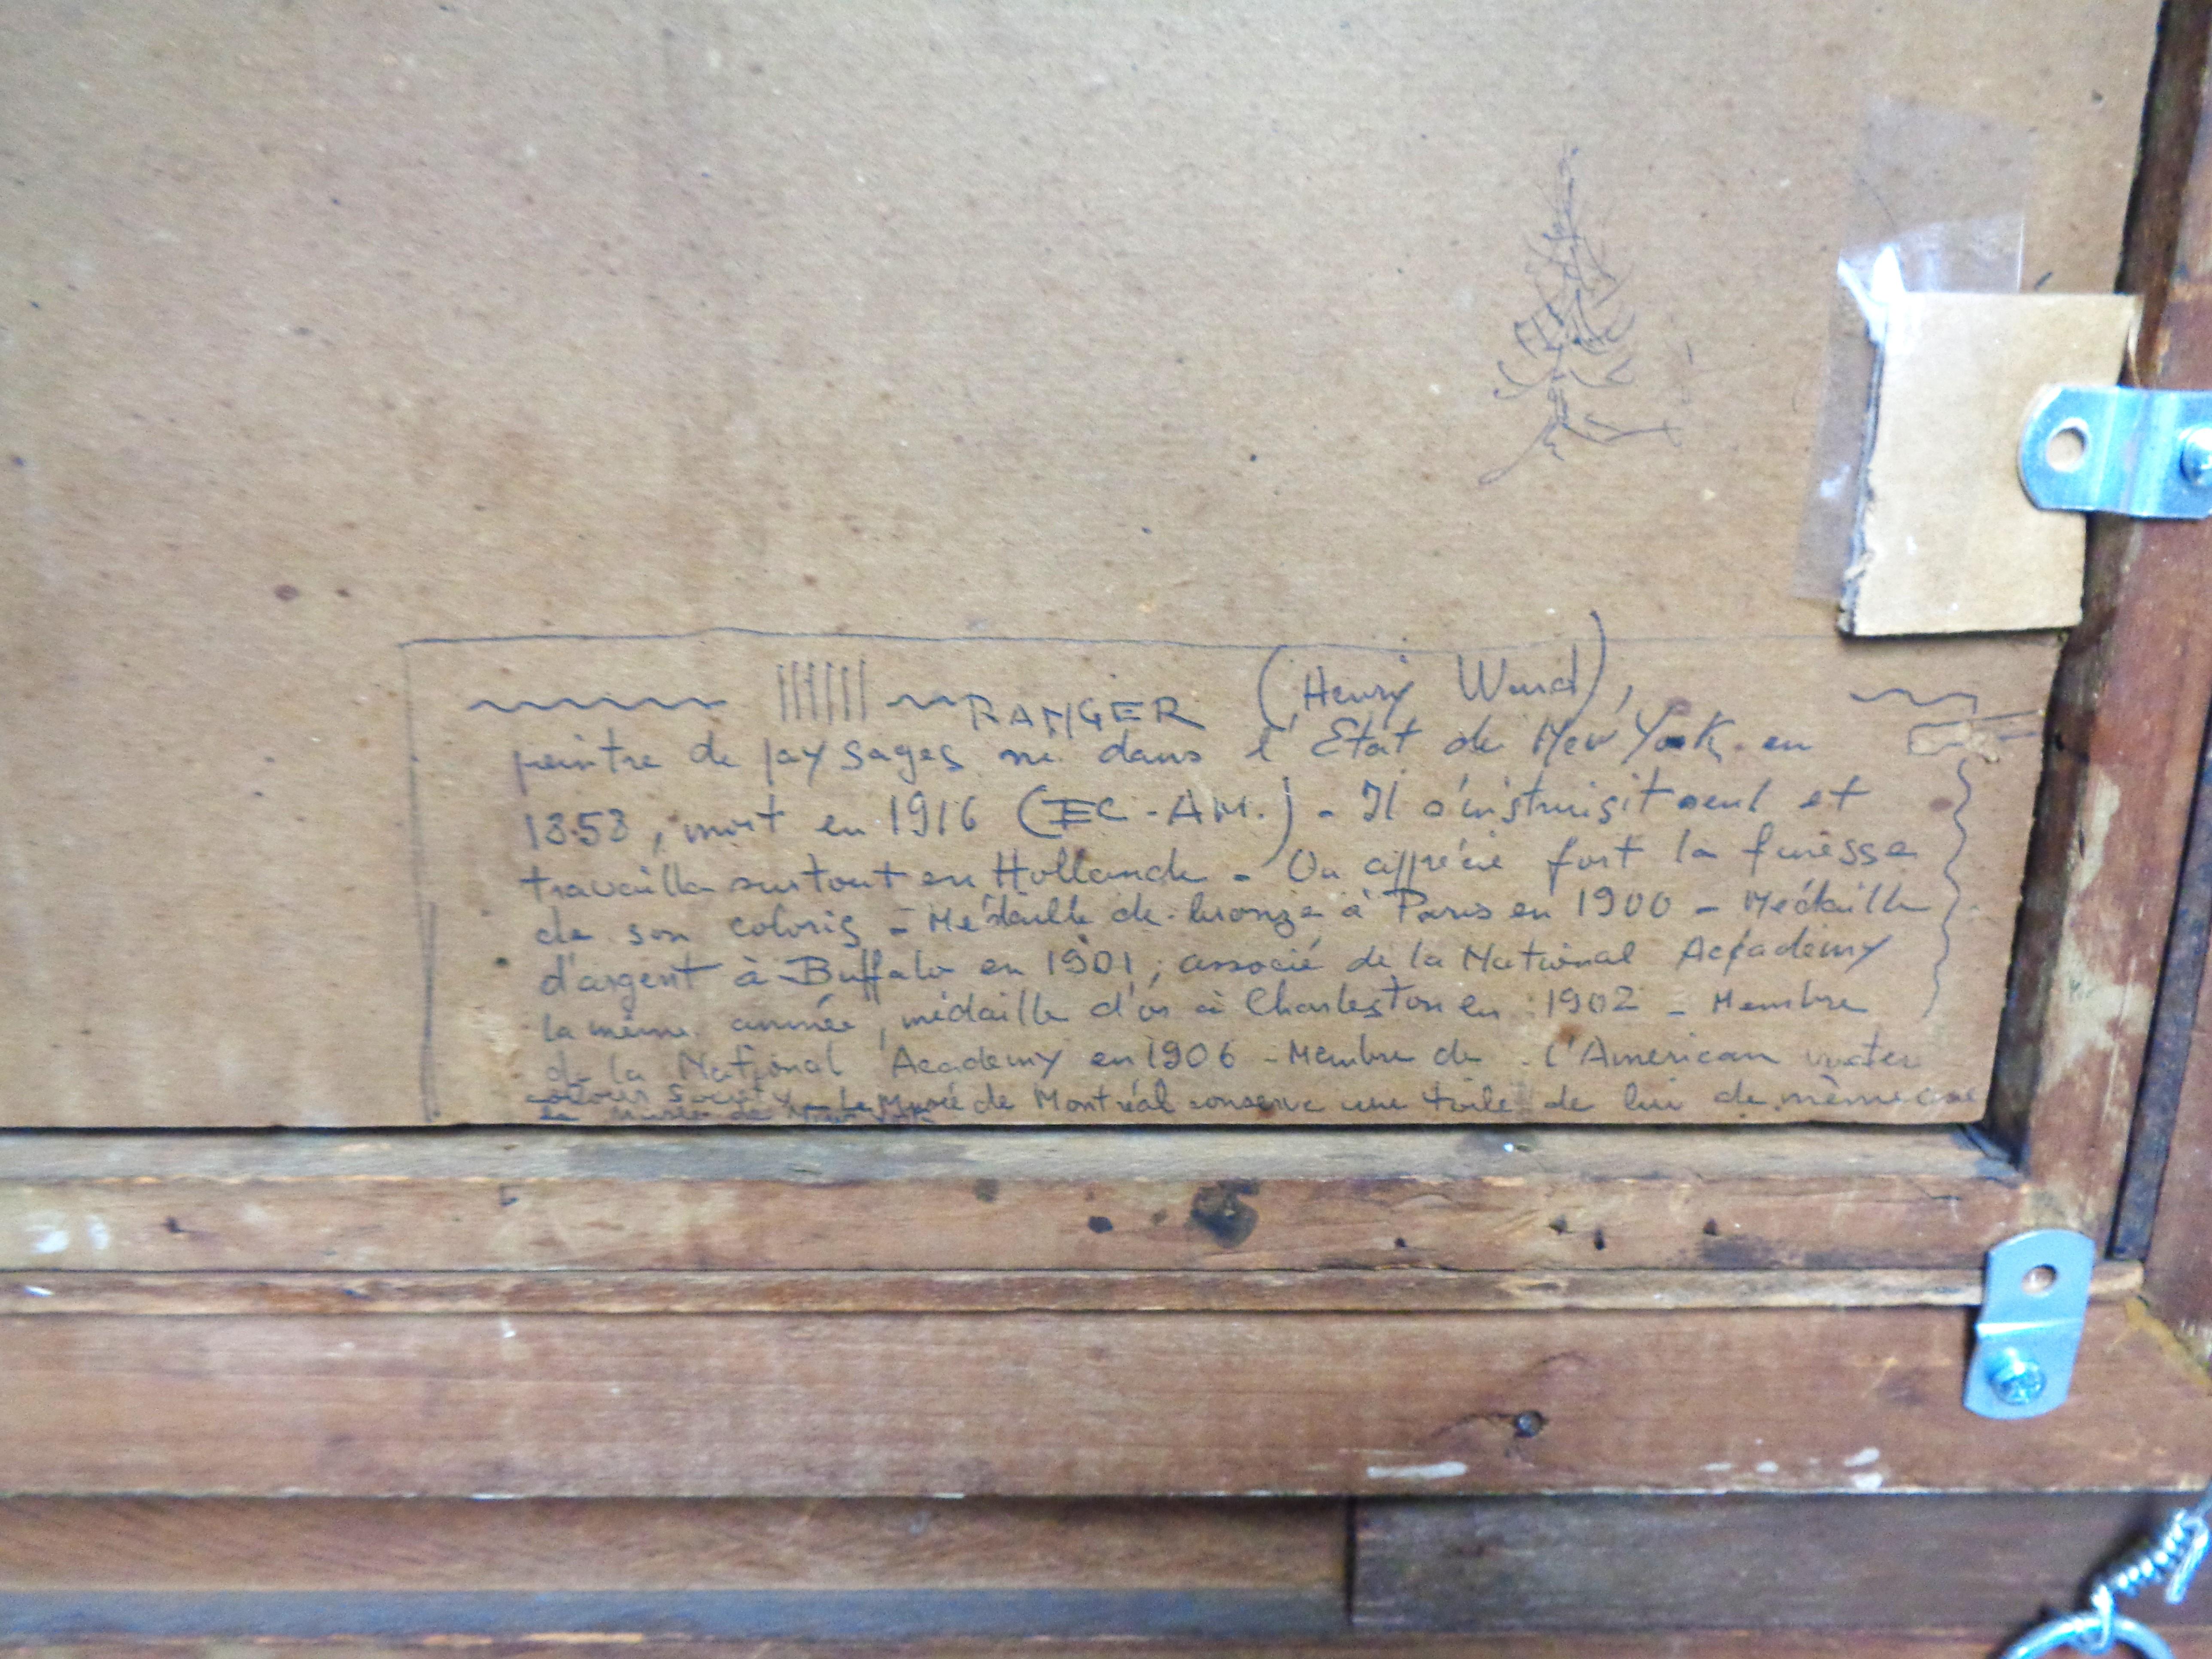 RANGER (Henry Ward),
peintre de paysages né dans l'Etat de New York en
1858, mort en 1916 (EC-AM.) - Il s'instruisit seul et
travailla surtout en Hollande - On apprécie fort la finesse
de son coloris - Médaille de bronze à Paris en 1900 - Médaille
d'argent à Buffalo en 1901, associé de la National Academy
la même année, médaille d'or à Charleston en 1902 - Membre
de la National Academy en 1906 - Membre de l'American water
colour Society - Le Musée de Montréal conserve une toile de lui de même que
le Musée de New York